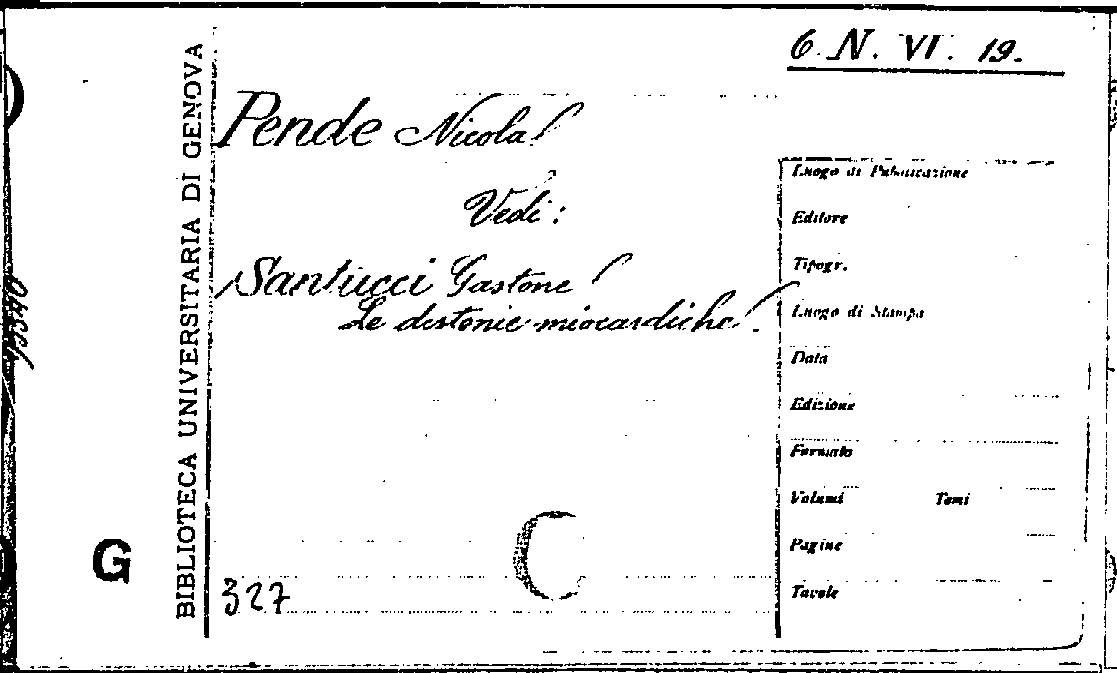 6. N. VI. 19.
BIBLIOTECA UNIVERSITARIA DI GENOVA
Pende Nicola
Vedi:
Santucci Gastone
Le distonie miocardiche.
Luogo di Pubblicazione
Editore
Tipogr.
Luogo di Stampa
Data
Edizione
Formato
Volumi Tomi
Pagine
Tavole
G
327